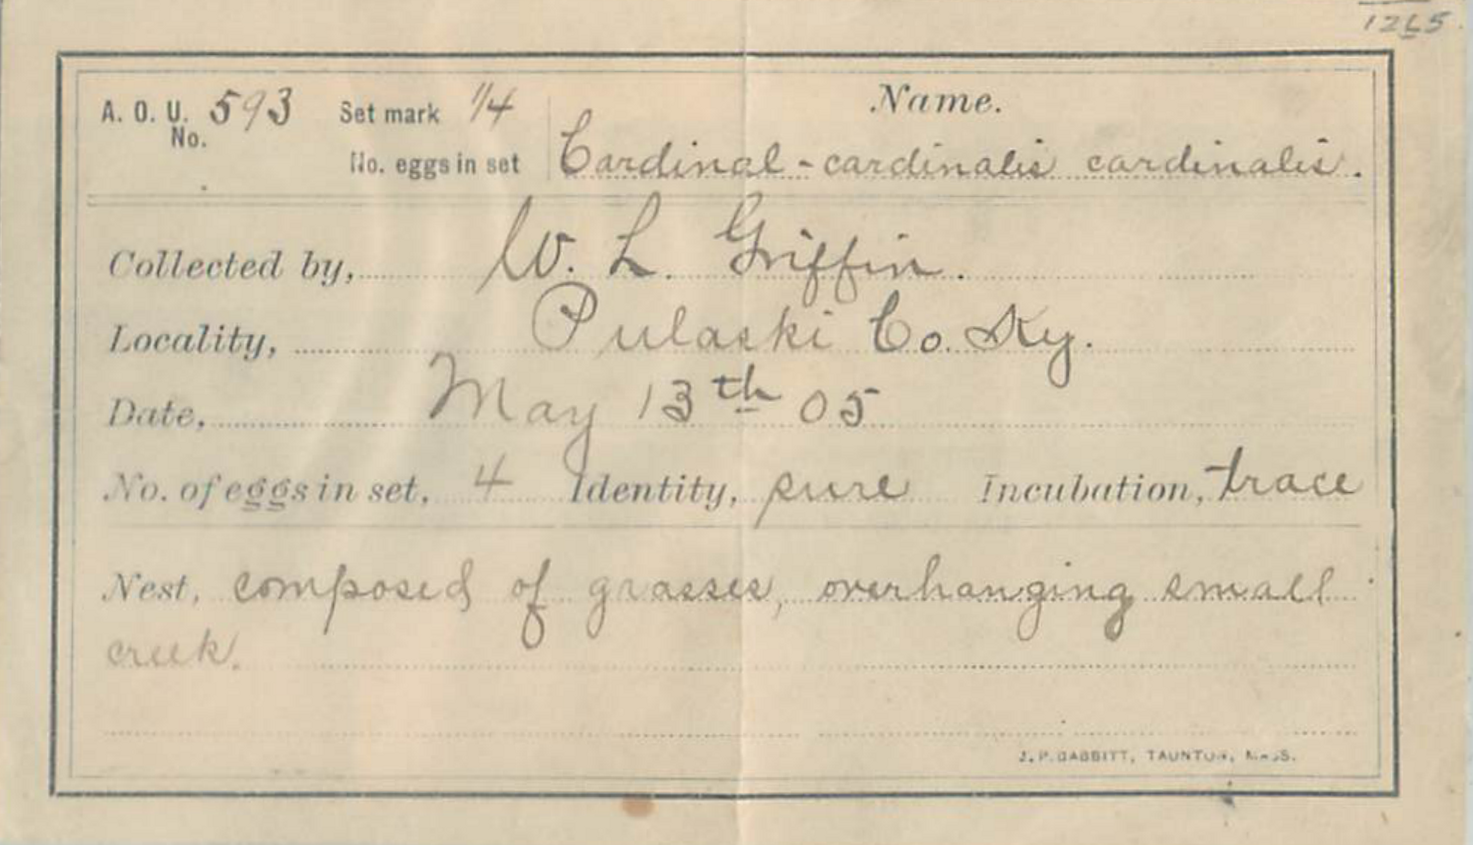 1265.
A. O. U. No. 593 Set mark 1/4 Name.
No. eggs in set Cardinal - cardinalis cardinalis.
Collected by, W. L. Griffin.
Locality, Pulaski Co. Ky.
Date, May 13th 05
No. of eggs in set, 4 Identity, sure Incubation, trace
Nest, composed of grasses, overhanging small
creek.
J. P. BABBITT, TAUNTON, MASS.